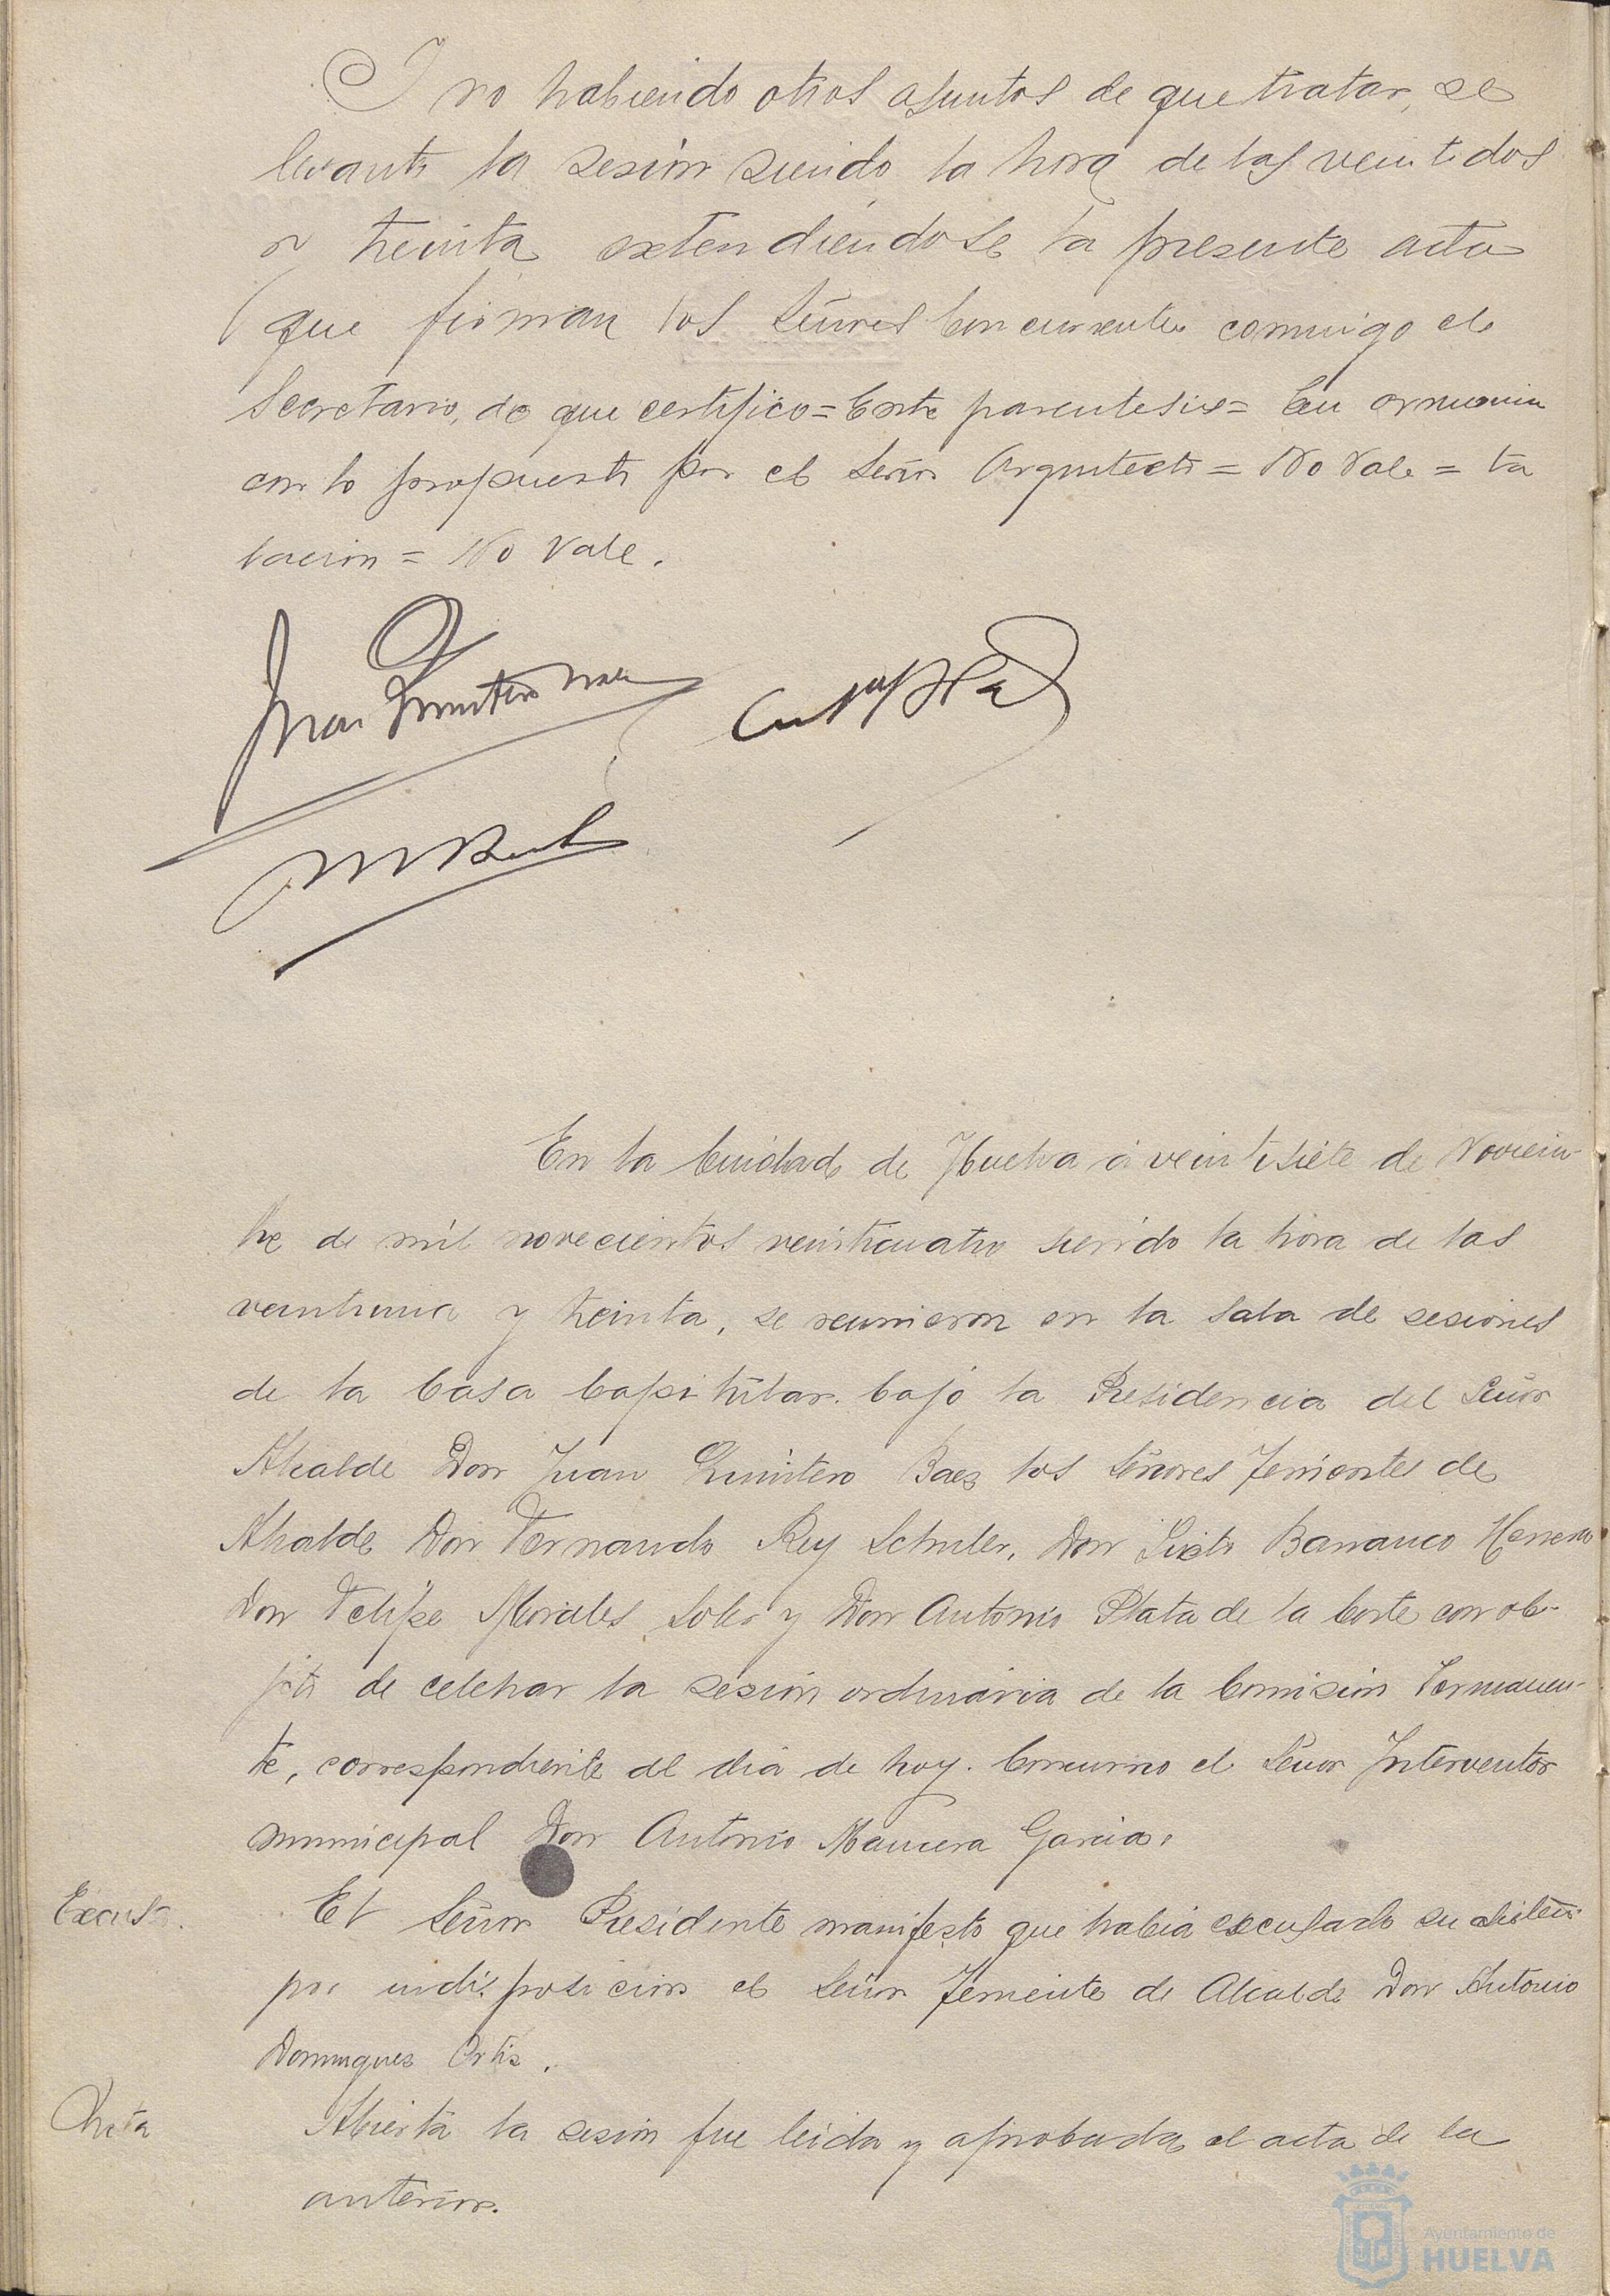 Y no habiendo otros asuntos de que tratar, se
levantó la sesión siendo la hora de las veintidos
y treinta extendiéndose la presente acta
que firman los Señores Concurrentes conmigo el
Secretario, de que certifico = Entre parentesis = En armonia
con lo propuesto por el Señor Arquitecto = No Vale = ta
tacion = No Vale.
Juan Quintero Baez
En la Ciudad de Huelva á veintisiete de Noviem-
bre de mil novecientos veinticuatro siendo la hora de las
veintiuna y treinta, se reunieron en la sala de sesiones
de la Casa Capitular bajo la Presidencia del Señor
Alcalde Don Juan Quintero Baez los Señores Tenientes de
Alcalde Don Fernando Rey Schuler, Don Sixto Barranco Herrero
Don Felipe Morales Soler y Don Antonio Plata de la Corte con ob-
jeto de celebrar la sesión ordinaria de la Comisión Permanen-
te, correspondiente al dia de hoy. Concurrió el Señor Interventor
municipal Don Antonio Mancera Garcia.
Excusa. El Señor Presidente manifestó que habia excusado su asisten
por indisposicion el Señor Teniente de Alcalde Don Antonio
Dominguez Ortiz.
Acta Abierta la sesión fue leida y aprobada el acta de la
anterior.
Ayuntamiento de
HUELVA